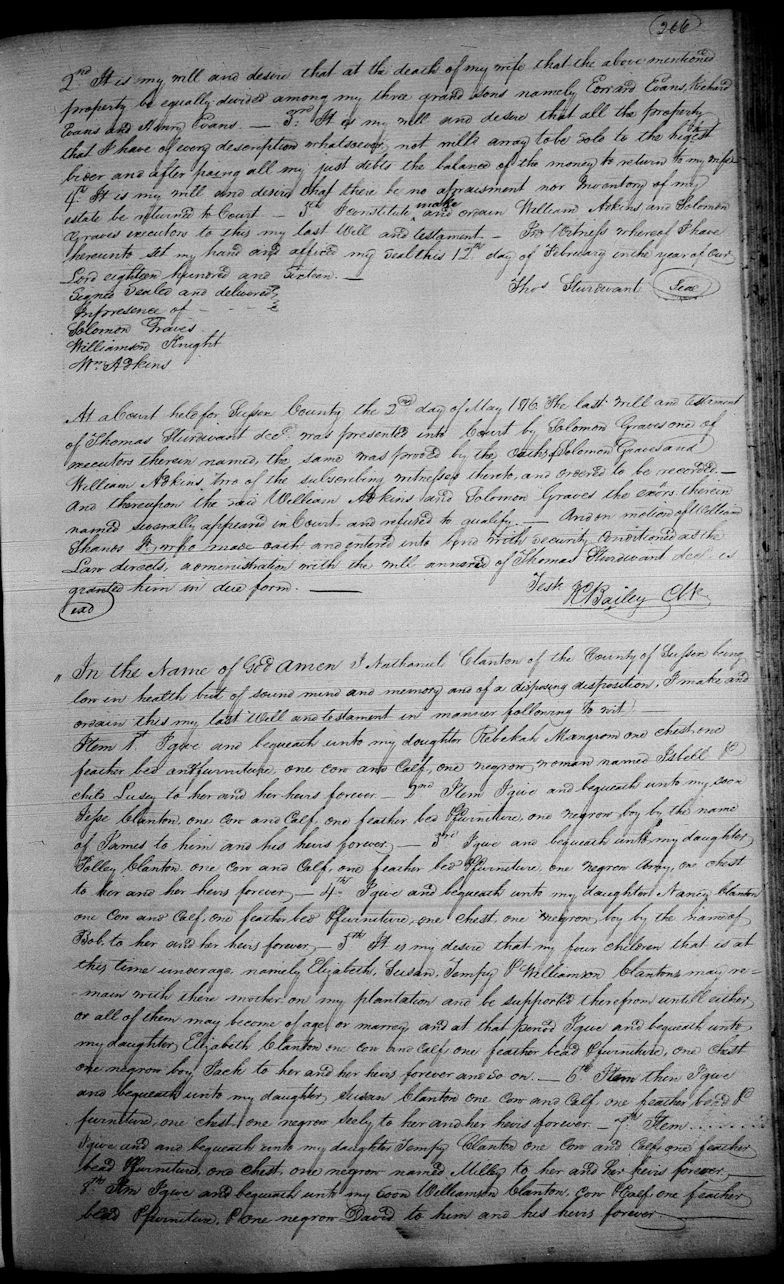 266
2nd It is my will and desire that at the death of my wife that the above mentioned
property be equally divided among my three grand sons namely Edward Evans, Richard
Evans and Henry Evans. — 3rd It is my will and desire that all the property
that I have of every description whatsoever, not will'd away to be sold to the highest
bider and after paying all my just debts the balance of the money to return to my wife
4th It is my will and desire that there be no apraisment nor Inventory of my
estate be returned to Court — 5th I constitute, make and ordain William Adkins and Solomon
Graves executors to this my last Will and testament — In Witness whereof I have
hereunto set my hand and affixed my seal this 12th day of February in the year of our
Lord eighteen hundred and Sixteen. —
Thos Sturdivant Seal
Signed Sealed and delivered
In presence of - - - -
Solomon Graves
Williamson Knight
Wm Adkins
At a Court held for Sussex County the 2nd day of May 1816. The last will and testament
of Thomas Sturdivant decd. was presented into Court by Solomon Graves one of
executors therein named, the same was proved by the oaths of Solomon Graves and
William Adkins two of the subscribing witnesses thereto, and ordered to be recorded. —
And thereupon the said William Adkins and Solomon Graves the exors. therein
named severally appeared in Court and refused to qualify. — And on motion of William
Thanos who made oath and entered into bond with security conditioned as the
Law directs, administration with the will annexed of Thomas Sturdivant decd. is
granted him in due form. —
Teste
Bailey Clk
exd
" In the Name of God Amen I Nathaniel Clanton of the County of Sussex being
low in health but of sound mind and memory and of a disposing disposition, I make and
ordain this my last Will and testament in manner following to wit! —
Item 1st I give and bequeath unto my daughter Rebekah Mangrom one chest, one
feather bed and furniture, one cow and Calf, one negrow woman named Isbell &
child Lusey to her and her heirs forever — 2nd Item I give and bequeath unto my soon
Jesse Clanton, one Cow and Calf, one feather bed & furniture, one negrow boy by the name
of James to him and his heirs forever, — 3rd I give and bequeath unto my daughter
Polley Clanton, one Cow and Calf, one feather bed & furniture, one negrow one chest
to her and her heirs forever, — 4th I give and bequeath unto my daughter Nancy Clanton
one Cow and Calf, one feather bed & furniture, one chest, one negrow boy by the name of
Bob, to her and her heirs forever, — 5th It is my desire that my four children that is at
this time underage, namely Elizabeth, Susan, Tempy & Williamson Clantons may re-
main with there mother on my plantation and be supported therefrom untill either
or all of them may become of age, or marrey, and at that period I give and bequeath unto
my daughter, Elizabeth Clanton one Cow and Calf one feather bead & furniture, one chest
one negrow boy Jack to her and her heirs forever and so on. — 6th Item then I give
and bequeath unto my daughter, Susan Clanton one Cow and Calf, one feather bead &
furniture, one chest, one negrow Seely to her and her heirs forever — 7th Item . . . . . .
I give and and bequeath unto my daughter Tempy Clanton one Cow and Calf, one feather
bead & furniture, one chest, one negrow named Milley to her and her heirs forever —
8th Itm I give and bequeath unto my soon Williamson Clanton, Cow & Calf, one feather
bead & furniture, & one negrow David to him and his heirs forever —